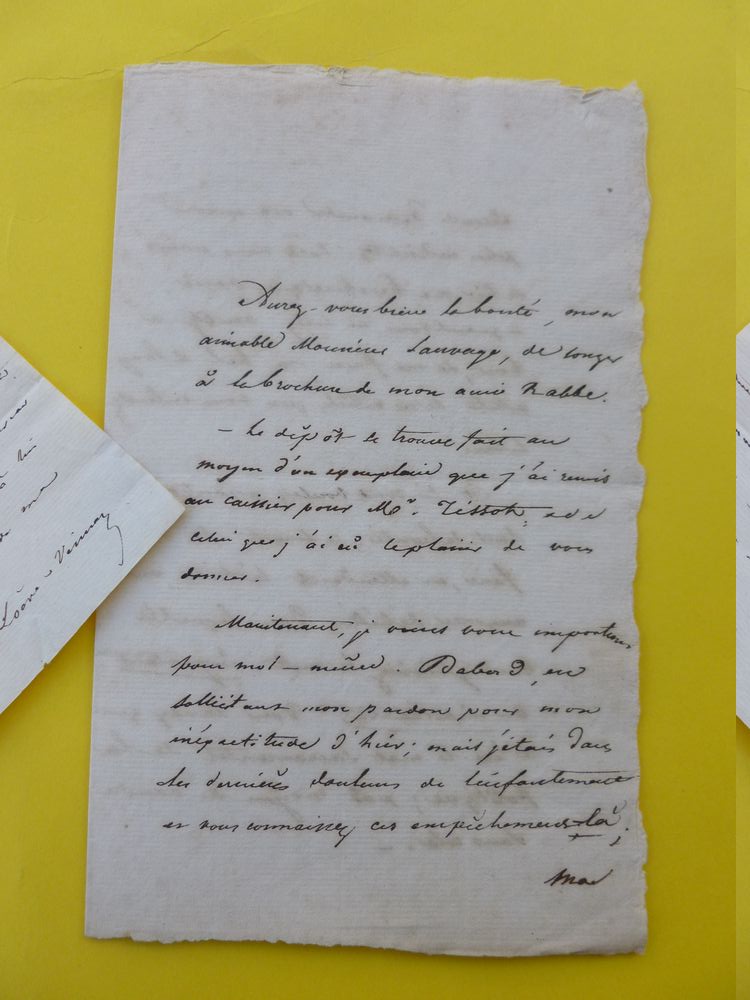 Aurez-vous bien la bonté, mon
aimable Monsieur Sauvage, de songer
à la brochure de mon ami Rabbe.
– le dépôt se trouve fait au
moyen d'un exemplaire que j'ai remis
au caissier pour Mr. Tissot, et de
celui que j'ai eû le plaisir de vous
donner.
Maintenant, je viens vous importuner
pour moi-même. Dabord, en
sollicitant mon pardon pour mon
inéxactitude d'hier; mais j'étais dans
les dernières douleurs de l'enfantement
et vous connaissez ces empêchemens-là;
ma
Loève-Veimar